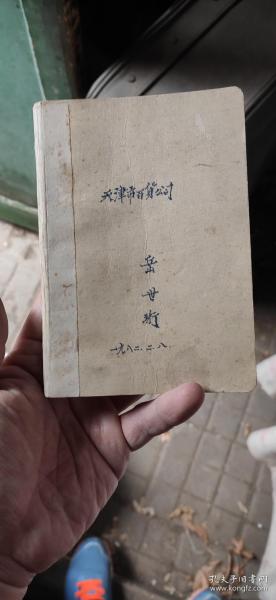 天津市百貨公司
岳世衡
一九八二.二.八.
孔夫子旧书网